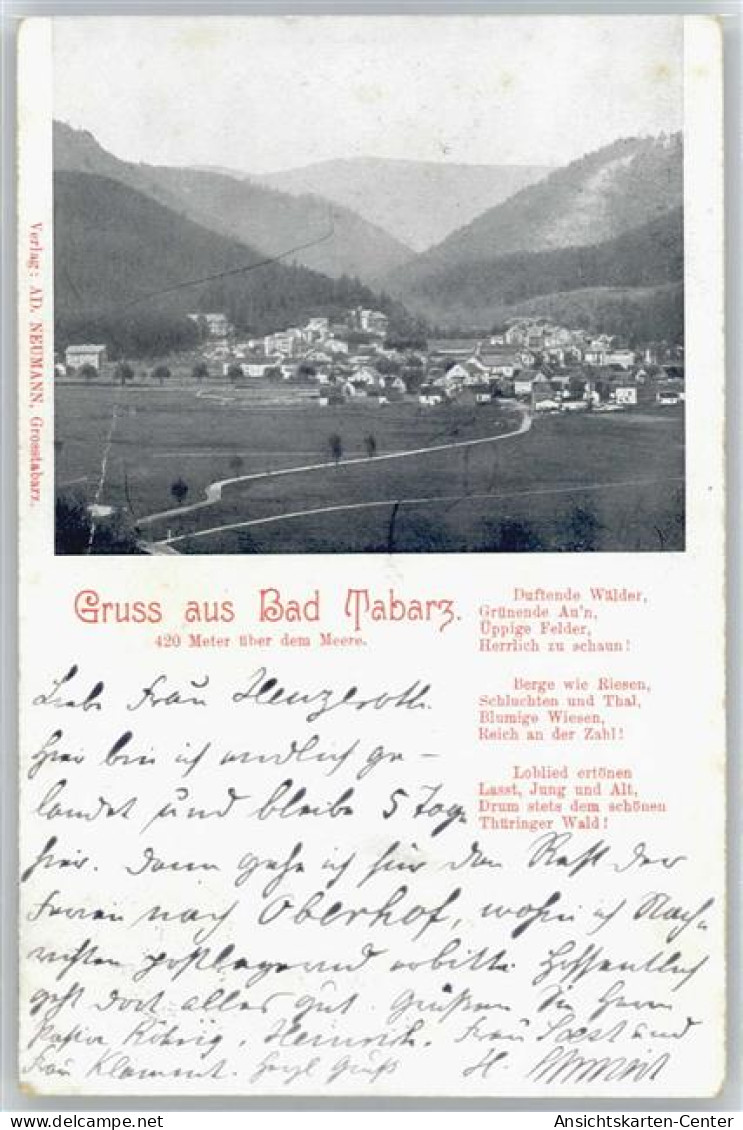 Verlag: AD. NEUMANN, Grosstabarz.
Gruss aus Bad Tabarz.
420 Meter über dem Meere.
Duftende Wälder,
Grünende Au'n,
Üppige Felder,
Herrlich zu schaun!
Berge wie Riesen,
Schluchten und Thal,
Blumige Wiesen,
Reich an der Zahl!
Loblied ertönen
Lasst, Jung und Alt,
Drum stets dem schönen
Thüringer Wald!
Liebe Frau Henzleroth.
Hier bin ich endlich ge-
landet und bleibe 5 Tage
hier. Dann gehe ich für den Rest der
Ferien nach Oberhof, wohin ich Nach-
richten postlagernd erbitte. Hoffentlich
geht dort alles gut. Grüßen Sie Herrn
Pastor Heinrich. Frau und
Frau Klammt. Herzl Gruß H.
Ansichtskarten-Center